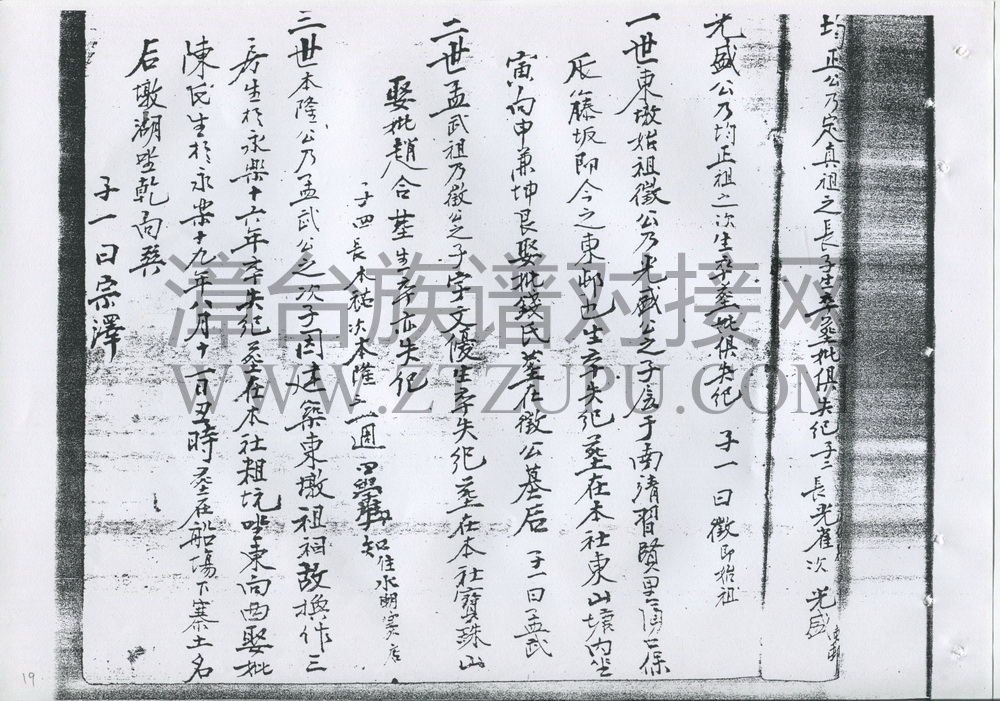 均正公乃定真祖之長子生卒葬妣俱失紀子二長光雀次光盛
光盛公乃均正祖之次生卒葬妣俱失紀 子一曰徵即始祖
一世東墩始祖徵公乃光盛公之子居于南清習賢里 保
藤坂即今之東邨也生卒失紀葬在本社東山 內坐
寅向申兼坤艮娶妣錢氏葬在徵公墓后 子一曰孟武
二世孟武祖乃徵公之子字文優生卒失紀葬在本社寶珠山
娶妣趙 合葬生卒亦失紀
子四 長本祐次本隆三 週四 住水湖
三世本隆公乃孟武公之次子因建築東墩祖祠故換作三
房生於永樂十六年卒失紀葬在本社粗坑坐東向西娶妣
陳氏生於永樂十九年八月十一日丑時葬在船場下寨土名
后墩湖坐乾向巽
子一曰宗澤
漳台族谱对接网
WWW.ZTZUPU.COM
19